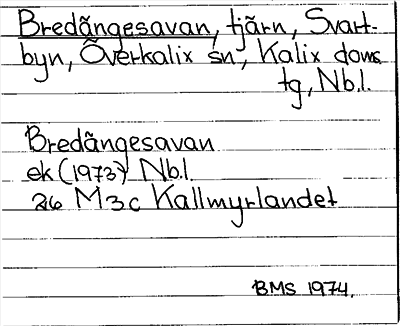 Bredängesavan, tjärn, Svart-
byn, Överkalix sn, Kalix doms
tg, Nb.l.
Bredängesavan
ek (1973) Nb.l.
26 M 3 c Kallmyrlandet
BMS 1974.